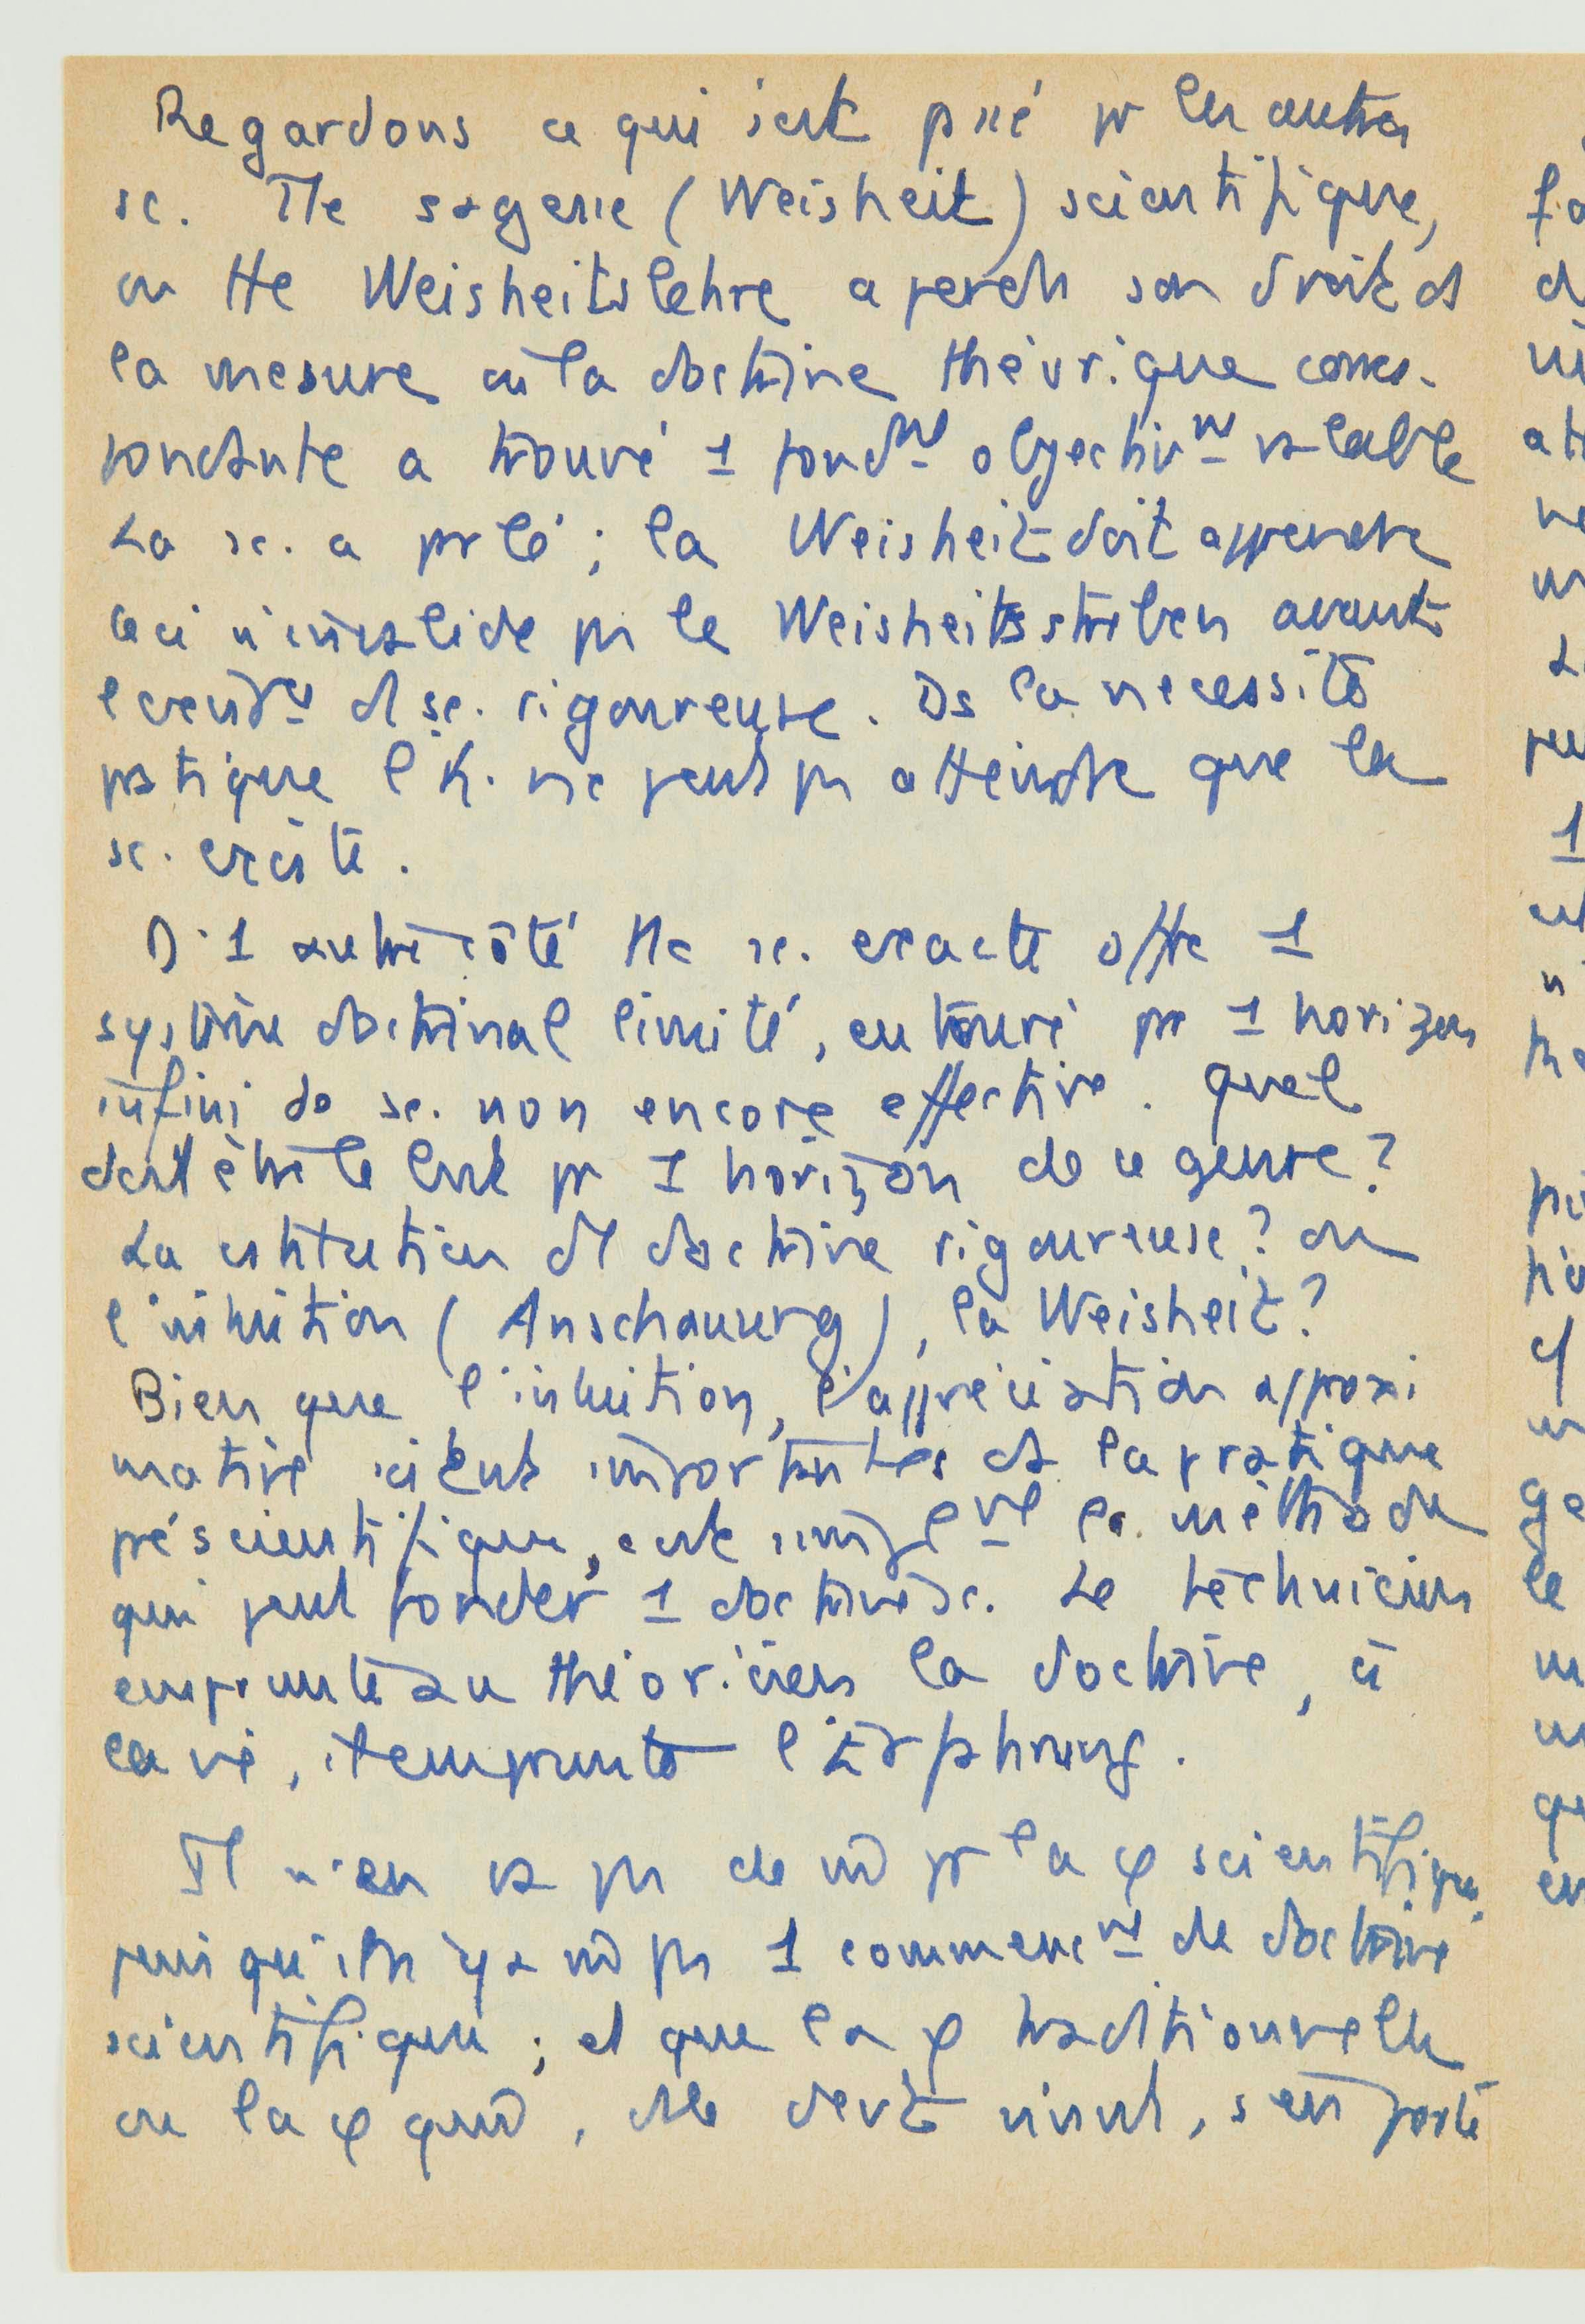 Regardons ce qui s'est passé pr les autres
sc. Tte sagesse (Weisheit) scientifique,
ou tte Weisheitslehre a perdu son droit ds
la mesure où la doctrine théorique corres-
pondante a trouvé 1 fondmt objectivmt valable
La sc. a parlé ; la Weisheit doit apprendre
Ceci n'invalide pas le Weisheitsstreben avant
d sc. rigoureuse. Ds la nécessité
pratique l'h. ne peut pas attendre que la
sc. existe.
D'1 autre côté tte sc. exacte offre 1
système doctrinal limité, entouré par 1 horizon
infini de sc. non encore effective. Quel
doit être le but pr 1 horizon de ce genre?
La cstitution d doctrine rigoureuse? ou
l'intuition (Anschauung), la Weisheit?
Bien que l'intuition, l'appréciation approxi
mative soient importantes ds la pratique
préscientifique, c'est simplemt la méthode
qui peut fonder 1 doctrine sc. Le technicien
emprunte au théoricien la doctrine, à
la vie, il emprunte l'Erfahrung.
Il n'en va pas de m̂ pr la φ scientifique,
puisqu'il n'y a m̂ pas 1 commencmt de doctrine
scientifique ; et que la φ traditionnelle
ou la φ quand, elle devt vivant, s'en porte